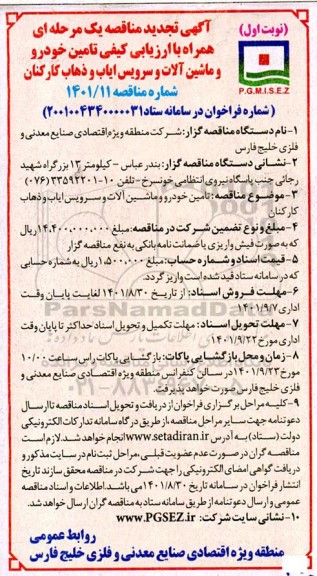 (نوبت اول)
آگهی تجدید مناقصه یک مرحله ای
همراه با ارزیابی کیفی تامین خودرو
و ماشین آلات و سرویس ایاب و ذهاب کارکنان
P.G.M.I.S.E.Z
شماره مناقصه ۱۴۰۱/۱۱
(شماره فراخوان در سامانه ستاد ۲۰۰۱۰۰۴۳۴۰۰۰۰۰۳۱)
۱-نام دستگاه مناقصه گزار: شرکت منطقه ویژه اقتصادی صنایع معدنی و
فلزی خلیج فارس
۲-نشانی دستگاه مناقصه گزار: بندر عباس - کیلومتر ۱۳ بزرگراه شهید
رجائی جنب پاسگاه نیروی انتظامی خونسرخ - تلفن ۱۰-۳۳۵۹۲۲۰۱ (۰۷۶)
۳-موضوع مناقصه: تامین خودرو و ماشین آلات و سرویس ایاب و ذهاب
کارکنان
۴-مبلغ و نوع تضمین شرکت در مناقصه: مبلغ ۱۴.۴۰۰.۰۰۰.۰۰۰ ریال
که به صورت فیش واریزی یا ضمانت نامه بانکی به نفع مناقصه گزار
۵-قیمت اسناد و شماره حساب: مبلغ ۱.۵۰۰.۰۰۰ ریال به شماره حسابی
که در سامانه ستاد قید شده است واریز گردد.
۶-مهلت فروش اسناد: از تاریخ ۱۴۰۱/۸/۳۰ لغایت پایان وقت
اداری ۱۴۰۱/۹/۷
۷-مهلت تحویل اسناد: مهلت تکمیل و تحویل اسناد حداکثر تا پایان وقت
اداری مورخ ۱۴۰۱/۹/۲۲
۸-زمان و محل بازگشایی پاکات: بازگشایی پاکات راس ساعت ۱۰/۰۰
مورخ ۱۴۰۱/۹/۲۳ در سالن کنفرانس منطقه ویژه اقتصادی صنایع معدنی و
فلزی خلیج فارس صورت خواهد پذیرفت.
۹-کلیه مراحل برگزاری فراخوان از دریافت و تحویل اسناد مناقصه تا ارسال
دعوتنامه جهت سایر مراحل مناقصه، از طریق درگاه سامانه تدارکات الکترونیکی
دولت (ستاد) به آدرس www.setadiran.ir انجام خواهد شد. لازم است
مناقصه گران در صورت عدم عضویت قبلی، مراحل ثبت نام در سایت مذکور و
دریافت گواهی امضای الکترونیکی را جهت شرکت در مناقصه محقق سازند تاریخ
انتشار فراخوان در سامانه تاریخ ۱۴۰۱/۸/۳۰ می باشد. اطلاعات و اسناد مناقصه
عمومی و ارسال دعوتنامه از طریق سامانه ستاد به مناقصه گران ارسال خواهد شد.
۱۰-نشانی سایت شرکت: www.PGSEZ.ir
روابط عمومی
منطقه ویژه اقتصادی صنایع معدنی و فلزی خلیج فارس